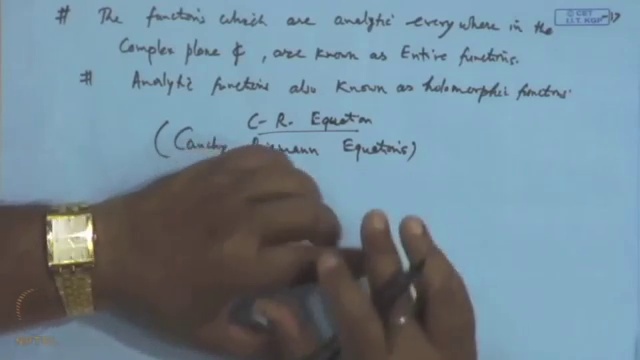 # The functions which are analytic everywhere in the
Complex plane ¢, are known as Entire functions.
# Analytic functions also known as holomorphic functions.
C-R. Equation
(Cauchy Riemann Equations)
© CET
I.I.T. KGP
NPTEL